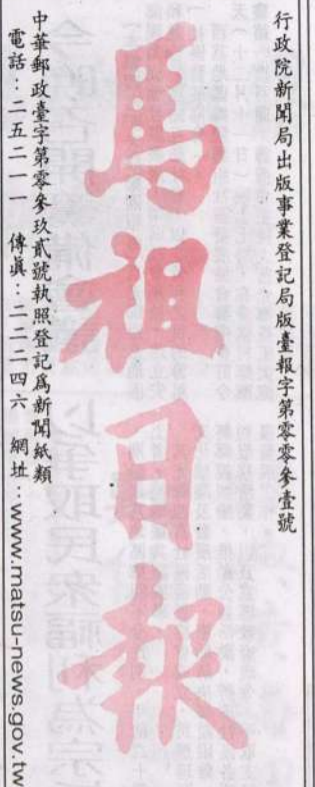 行政院新聞局出版事業登記局版臺報字第零零參壹號
馬祖日報
中華郵政臺字第零參玖貳號執照登記為新聞紙類
電話：二五二一一　傳眞：二二二四六　網址：www.matsu-news.gov.tw